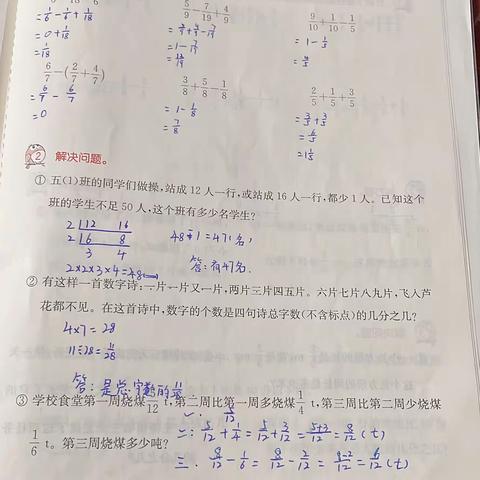 = 1/6 - 1/6 + 1/18
= 0 + 1/18
= 1/18
5/9 - 7/19 + 4/9
= 1 - 7/19
= 12/19
9/10 + 1/10 - 1/5
= 1 - 1/5
= 4/5
6/7 - (2/7 + 4/7)
= 6/7 - 6/7
= 0
3/8 + 5/8 - 1/8
= 1 - 1/8
= 7/8
2/5 + 1/5 + 3/5
= 3/5 + 3/5
= 6/5
= 1 1/5
2 解决问题。
① 五(1)班的同学们做操,站成 12 人一行,或站成 16 人一行,都少 1 人。已知这个
班的学生不足 50 人,这个班有多少名学生?
2 12 16
2 6 8
3 4
2×2×3×4=48
48-1=47(名)
答:有47名.
② 有这样一首数字诗:一片一片又一片,两片三片四五片。六片七片八九片,飞入芦
花都不见。在这首诗中,数字的个数是四句诗总字数(不含标点)的几分之几?
4×7=28
11÷28=11/28
答:是总字数的11/28
③ 学校食堂第一周烧煤5/12 t,第二周比第一周多烧煤1/4 t,第三周比第二周少烧煤
1/6 t。第三周烧煤多少吨?
一: 5/12
二: 5/12 + 1/4 = 5/12 + 3/12 = 5+3/12 = 8/12 (t)
三. 8/12 - 1/6 = 8/12 - 2/12 = 8-2/12 = 6/12 (t)